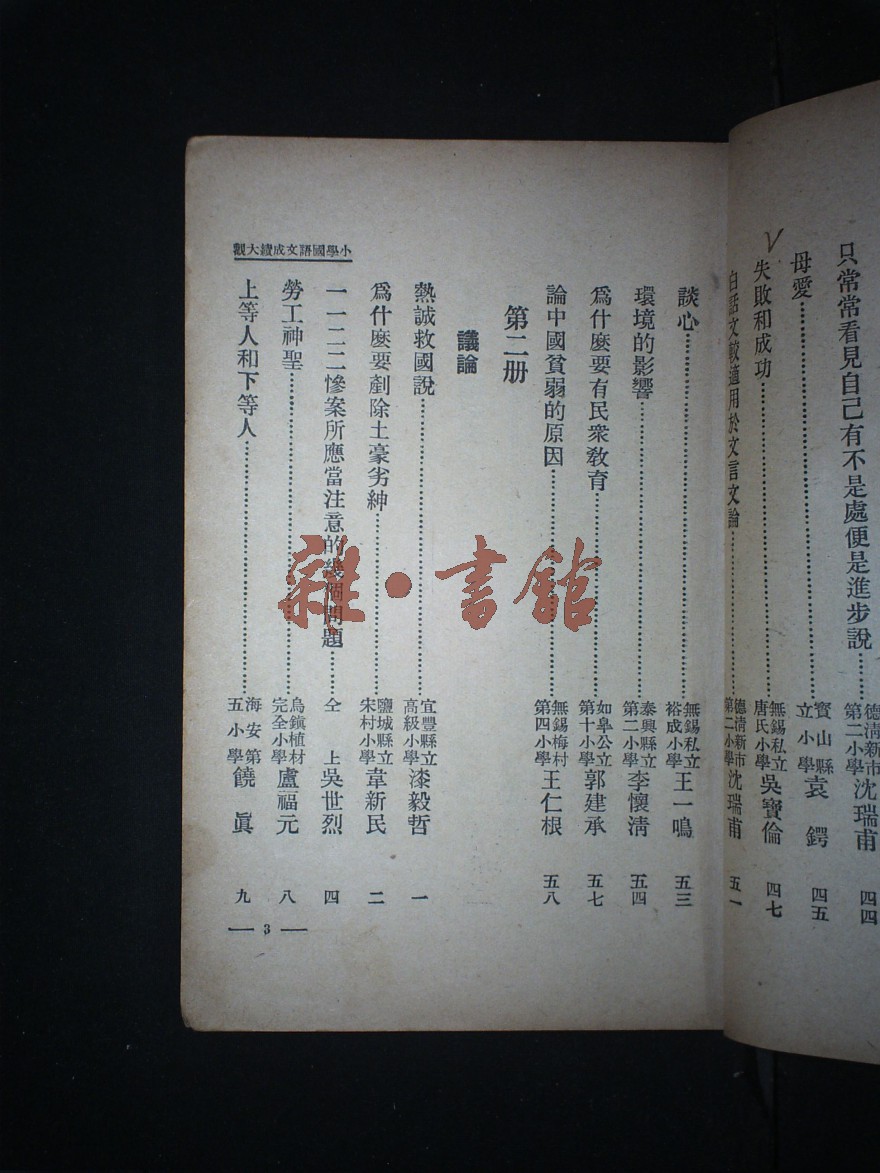 只常常看見自己有不是處便是進步說 德清新市第二小學 沈瑞甫 四四
母愛 寶山縣立小學 袁鍔 四五
失敗和成功 無錫私立唐氏小學 吳寶倫 四七
白話文較適用於文言文論 德清新市第二小學 沈瑞甫 五一
談心 無錫私立裕成小學 王一鳴 五三
環境的影響 泰興縣立第二小學 李懷清 五四
爲什麼要有民衆教育 如皋公立第十小學 郭建承 五七
論中國貧弱的原因 無錫梅村第四小學 王仁根 五八
第二册
議論
熱誠救國說 宜豐縣立高級小學 漆毅哲 一
爲什麼要剷除土豪劣紳 鹽城縣立宋村小學 韋新民 二
一一二二慘案所應當注意的幾個問題 仝上 吳世烈 四
勞工神聖 烏鎭植材完全小學 盧福元 八
上等人和下等人 海安第五小學 饒眞 九
小學國語文成績大觀
3
雜·書館